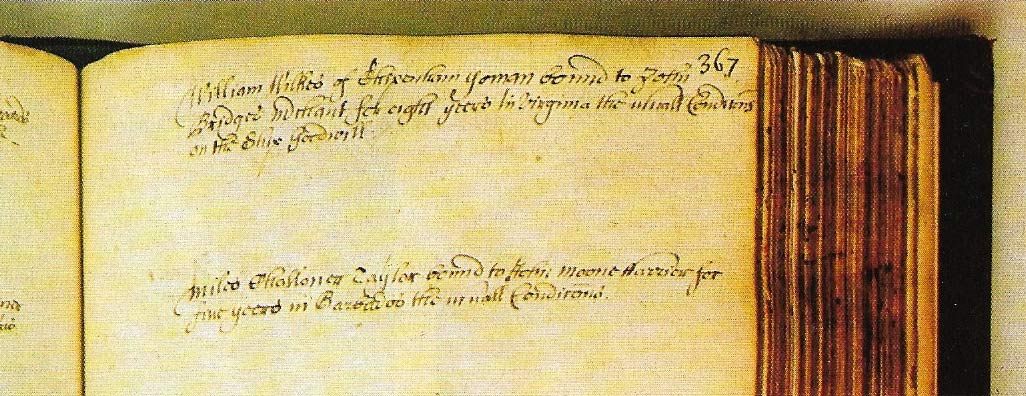 367
William Wilkes of Chipenham yoman bound to John
Bridges Mrchant for eight yeers in Virginia the usuall Conditons
on the Ship Goodwill
Miles Challoner Taylor bound to John Moone Farrier for
five yeers in Barbados the usuall Conditons.